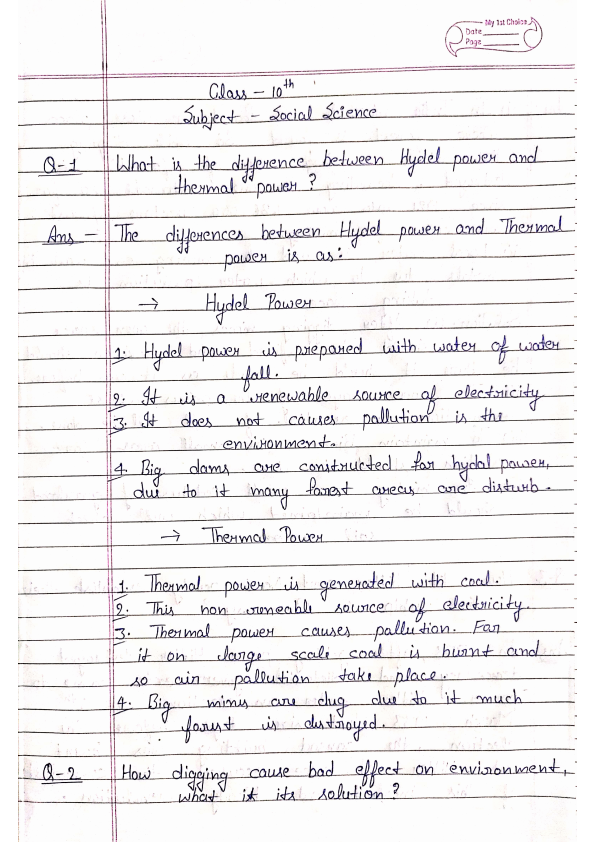 My 1st Choice
Date
Page
Class - 10th
Subject - Social Science
Q-1 What is the difference between Hydel power and
thermal power ?
Ans - The differences between Hydel power and Thermal
power is as:
→ Hydel Power
1. Hydel power is prepared with water of water
fall.
2. It is a renewable source of electricity
3. It does not causes pallution is the
environment.
4. Big dams are constructed far hydal power,
due to it many farest areas are disturb.
→ Thermal Power
1. Thermal power is generated with coal.
2. This non reneable source of electricity.
3. Thermal power causes pallution. Far
it on large scale coal is burnt and
so air pallution take place.
4. Big minus are dug due to it much
farest is distroyed.
Q-2 How digging cause bad effect on environment,
what it its solution ?